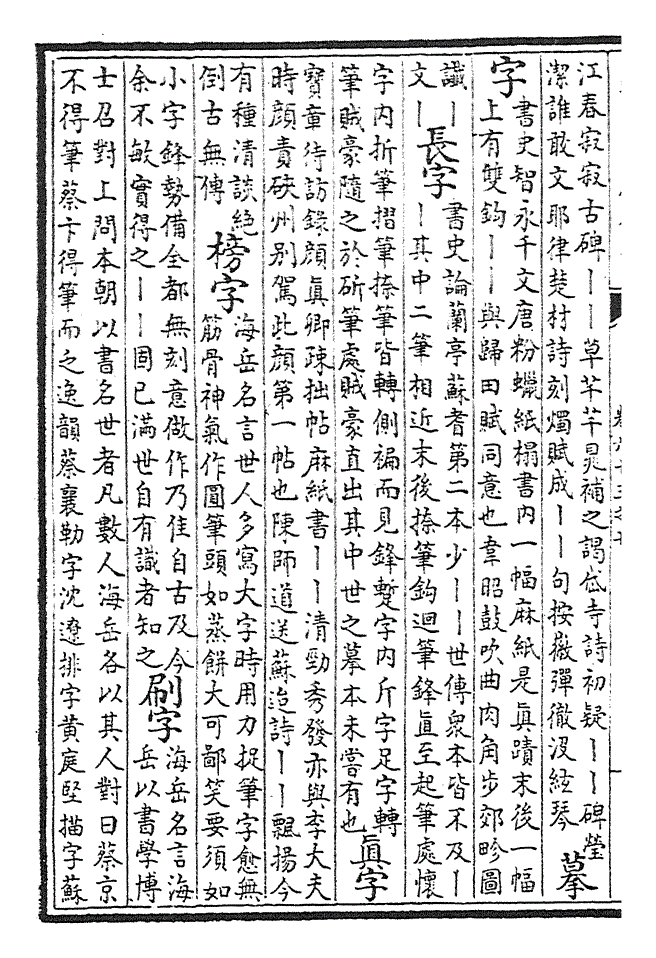 江春寂寂古碑丨丨草芊芊晁補之謁岱寺詩初疑丨丨碑瑩
潔誰敢文耶律楚材詩刻燭賦成丨丨句按徽彈徹沒絃琴
摹
字
書史智永千文唐粉蠟紙搨書內一幅麻紙是眞蹟末後一幅
上有雙鈎丨丨與歸田賦同意也韋昭鼓吹曲肉角步郊畛圖
讖丨
文丨
長字
書史論蘭亭蘇耆第二本少丨丨世傳衆本皆不及丨
丨其中二筆相近末後捺筆鈎迴筆鋒直至起筆處懷
字內折筆摺筆捺筆皆轉側褊而見鋒蹔字內斤字足字轉
筆賊豪隨之於斫筆處賊豪直出其中世之摹本未嘗有也
眞字
寶章待訪錄顔眞卿疎拙帖麻紙書丨丨清勁秀發亦與李大夫
時顔責硤州别駕此顔第一帖也陳師道送蘇迨詩丨丨飄揚今
有種清談絶
倒古無傳
榜字
海岳名言世人多寫大字時用力捉筆字愈無
筋骨神氣作圓筆頭如蒸餅大可鄙笑要須如
小字鋒勢備全都無刻意做作乃佳自古及今
余不敏實得之丨丨固已滿世自有識者知之
刷字
海岳名言海
岳以書學博
士召對上問本朝以書名世者凡數人海岳各以其人對曰蔡京
不得筆蔡卞得筆而乏逸韻蔡襄勒字沈遼排字黄庭堅描字蘇